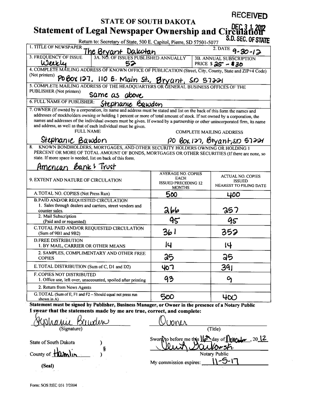 RECEIVED
DEC 31 2012
S.D. SEC. OF STATE
STATE OF SOUTH DAKOTA
Statement of Legal Newspaper Ownership and Circulation
Return to: Secretary of State, 500 E. Capitol, Pierre, SD 57501-5077
1. TITLE OF NEWSPAPER The Bryant Dakotan
2. DATE 9-30-12
3. FREQUENCY OF ISSUE Weekly
3A. NO. OF ISSUES PUBLISHED ANNUALLY 52
3B. ANNUAL SUBSCRIPTION PRICE
4. COMPLETE MAILING ADDRESS OF KNOWN OFFICE OF PUBLICATION (Street, City, County, State and ZIP+4 Code)
(Not printers) PO Box 127, 110 E. Main St, Bryant, SD 57221
5. COMPLETE MAILING ADDRESS OF THE HEADQUARTERS OR GENERAL BUSINESS OFFICES OF THE
PUBLISHER (Not printer) Same as above
6. FULL NAME OF PUBLISHER: Stephanie Bawdon
7. OWNER (If owned by a corporation, its name and address must be stated and list on the back of this form the names and
addresses of stockholders owning or holding 1 percent or more of total amount of stock. If not owned by a corporation, the
names and addresses of the individual owners must be given. If owned by a partnership or other unincorporated firm, its name
and address, as well as that of each individual must be given.
FULL NAME
COMPLETE MAILING ADDRESS
Stephanie Bawdon
PO Box 127, Bryant, SD 57221
8. KNOWN BONDHOLDERS, MORTGAGES, AND OTHER SECURITY HOLDERS OWNING OR HOLDING 1
PERCENT OR MORE OF TOTAL AMOUNT OF BONDS, MORTGAGES OR OTHER SECURITIES (If there are none, so
state. If more space is needed, list on back of this form.
American Bank & Trust
9. EXTENT AND NATURE OF CIRCULATION
AVERAGE NO. COPIES
EACH
ISSUED PRECEDING 12
MONTHS
ACTUAL NO. COPIES
ISSUED
NEAREST TO FILING DATE
A. TOTAL NO. COPIES (Net Press Run) 500 400
B. PAID AND/OR REQUESTED CIRCULATION
1. Sales through dealers and carriers, street vendors and
counter sales. 266 257
2. Mail Subscription
(Paid and or requested) 95 95
C. TOTAL PAID AND/OR REQUESTED CIRCULATION
(Sum of 9B1 and 9B2) 361 352
D. FREE DISTRIBUTION
1. BY MAIL, CARRIER OR OTHER MEANS 14 14
2. SAMPLES, COMPLIMENTARY AND OTHER FREE
COPIES 25 25
E. TOTAL DISTRIBUTION (Sum of C, D1 and D2) 407 391
F. COPIES NOT DISTRIBUTED
1. Office use, left over, unaccounted, spoiled after printing 93 9
2. Return from News Agents
G. TOTAL (Sum of E, F1 and F2 – Should equal net press run
shown in A) 500 400
Statement must be signed by Publisher, Business Manager, or Owner in the presence of a Notary Public
I swear the statements made by me are true, correct, and complete:
Stephanie Bawdon Owner
(Signature) (Title)
State of South Dakota )
) §
County of Hamlin )
Sworn to before me this day of , 2012
Notary Public
(Seal)
My commission expires: 11-5-17
Form: SOS REC 051 7/2004